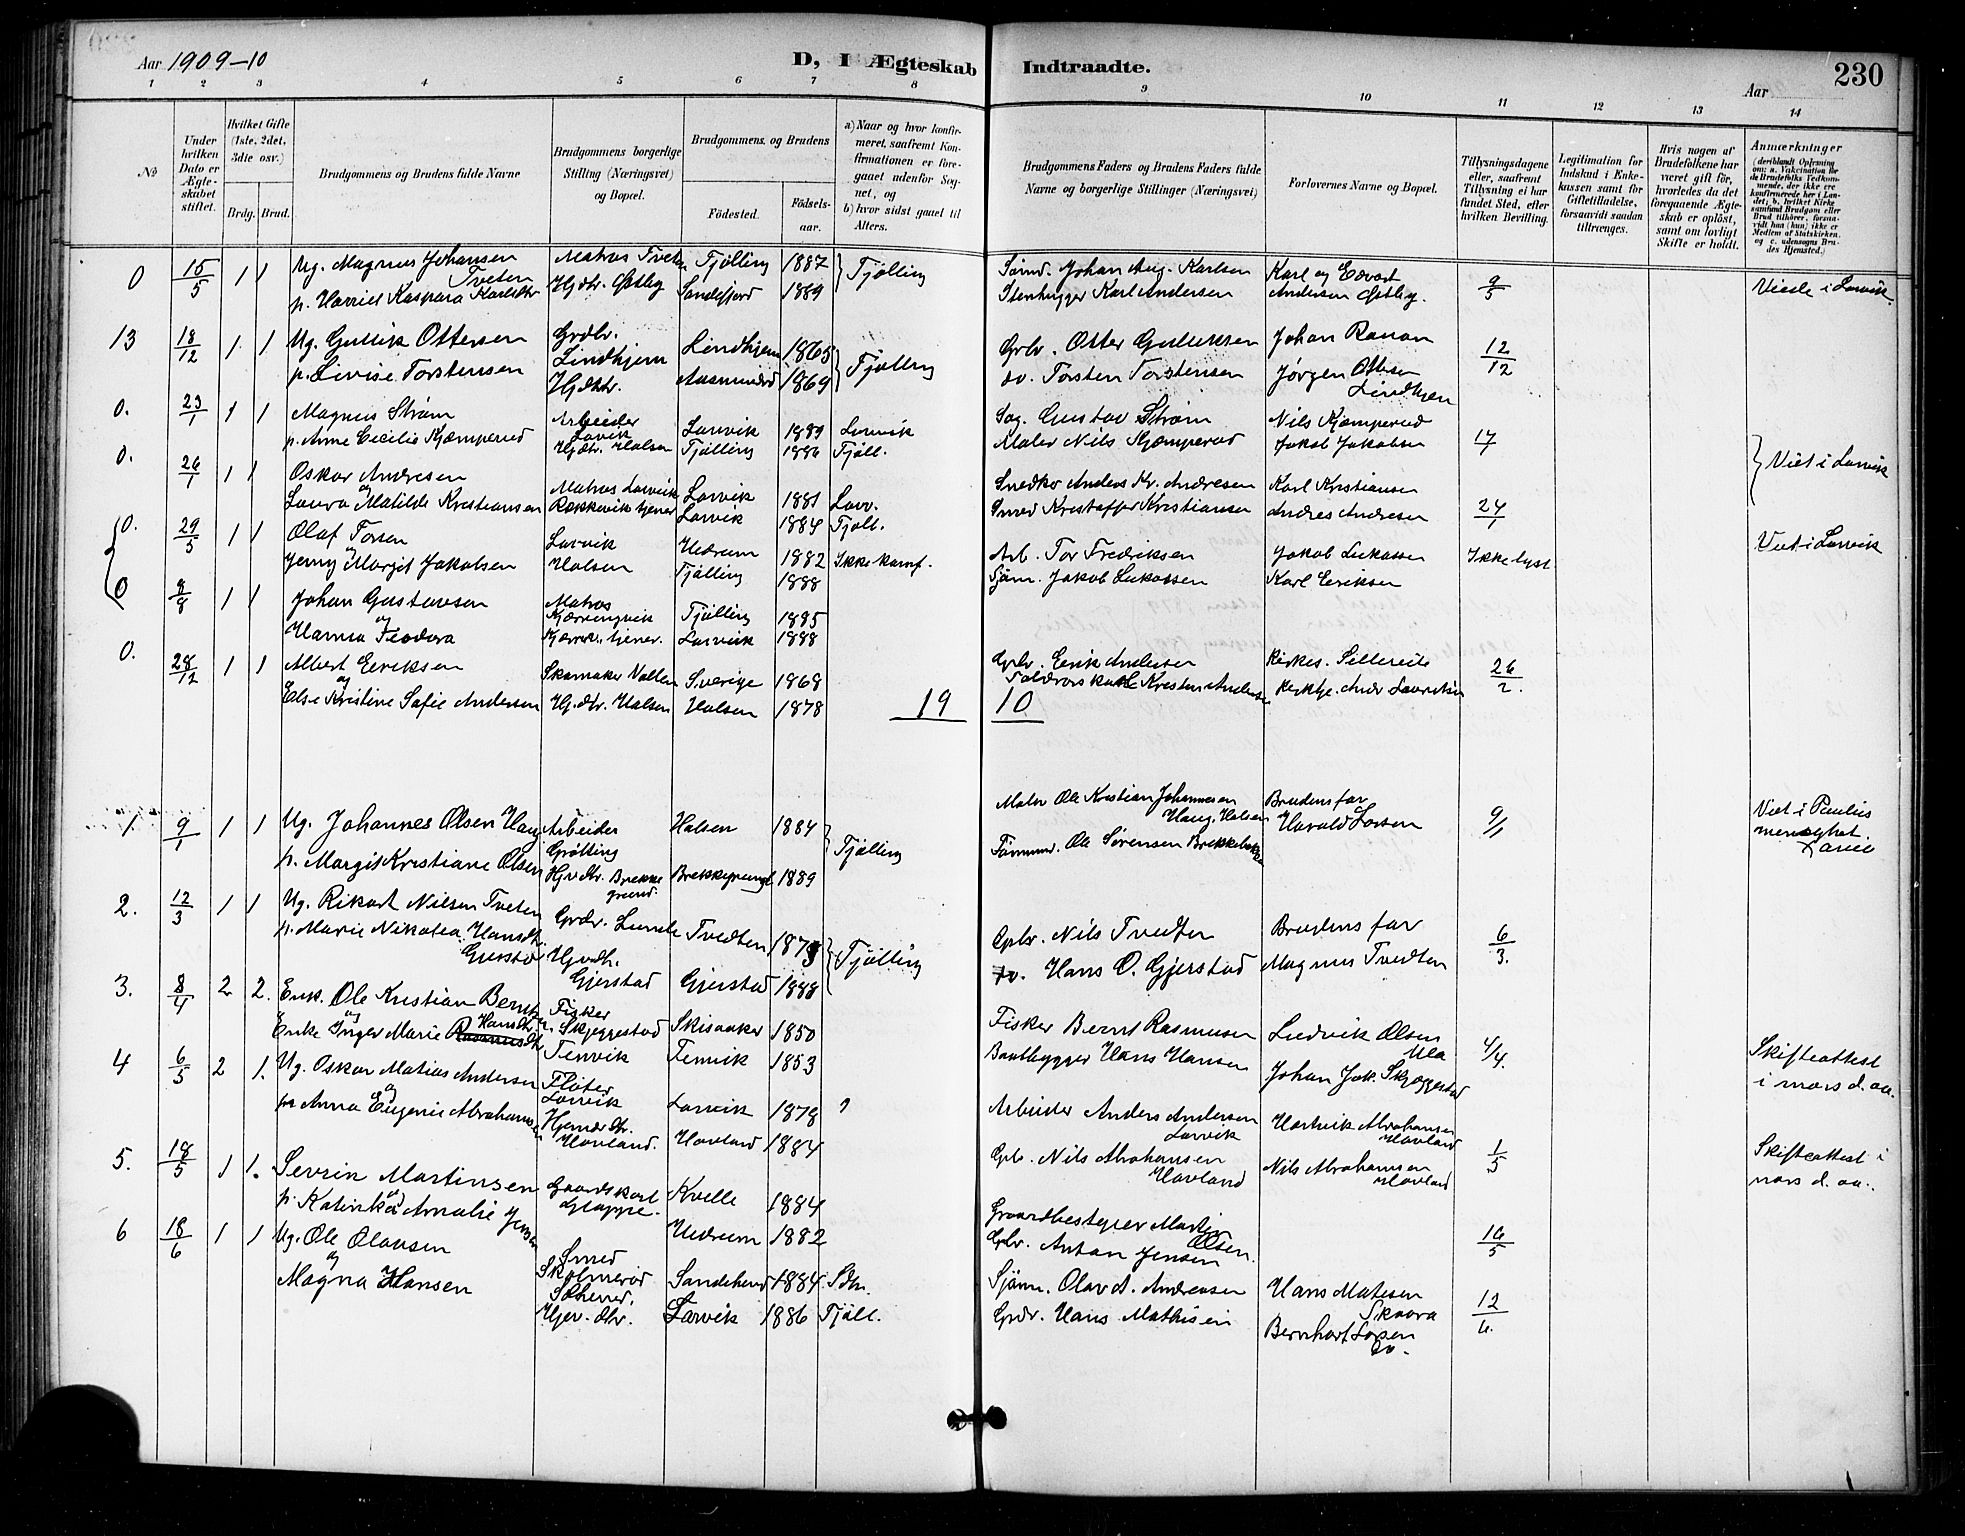 Aar 1909-10
D, I Ægteskab Indtraadte.
Aar
230
1 2 3 4 5 6 7 8 9 10 11 12 13 14
No
Under hvilken Dato er Ægteskabet stiftet.
Hvilket Gifte (1ste, 2det, 3dte osv.)
Brdg. Brud.
Brudgommens og Brudens fulde Navne
Brudgommens borgerlige Stilling (Næringsvei) og Bopæl.
Brudgommens og Brudens
Fødested.
Fødselsaar.
a) Naar og hvor konfirmeret, saafremt Konfirmationen er foregaaet udenfor Sognet, og
b) hvor sidst gaaet til Alters.
Brudgommens Faders og Brudens Faders fulde Navne og borgerlige Stillinger (Næringsvei)
Forlovernes Navne og Bopæl.
Tillysningsdagene eller, saafremt Tillysning ei har fundet Sted, efter hvilken Bevilling.
Legitimation for Indskud i Enkekassen samt for Giftetilladelse, forsaavidt saadan tiltrænges.
Hvis nogen af Brudefolkene har været gift før, hvorledes da det foregaaende Ægteskab er opløst, samt om lovligt Skifte er holdt.
Anmærkninger
(deriblandt Oplysning om: a. Vakcination for de Brudefolks Vedkommende, der ikke ere konfirmerede her i Landet; b. hvilket Kirkesamfund Brudgom eller Brud tilhører, forsaavidt han (hun) ikke er Medlem af Statskirken, og c. udensogns Brudes Hjemsted.)
0 15/5 1 1 Ug. Magnus Johansen Tveten Matros Tveten Tjølling 1887 Tjølling Sømd. Johan Aug. Karlsen Karl og Edvart 9/5 Viede i Larvik.
p. Harriet Kaspara Karlsdtr Hjdtr. Østby Sandefjord 1889 Stenhugger Karl Andersen Andersen Østby.
13 18/12 1 1 Ug. Gullik Ottersen Grdbr. Lindhjem Lindhjem 1865 Tjølling Grbr. Otter Gulliksen Johan Ranan 12/12
p. Livise Torstensen Hjdtr. Aasmundrd 1869 do. Torsten Torstensen Jørgen Ottesen Lindhjem
0. 23/1 1 1 Magnus Strøm Arbeider Larvik Larvik 1889 Larvik Sag. Gustav Strøm Nils Kjæmperud 17
p. Anne Cecilie Kjæmperud Hjdtr. Halsen Tjølling 1886 Tjøll. Maler Nils Kjæmperud Jakob Jakobsen Viet i Larvik
0. 26/1 1 1 Oskar Andresen Matros Larvik Larvik 1881 Larv. Snedker Anders Kr. Andresen Karl Kristiansen
og Laura Matilde Kristiansen Rekkevik tjener Larvik 1884 Tjøll. Smed Kristoffer Kristiansen Andres Andresen 24/1
0. 29/5 1 1 Olaf Torsen Larvik Hedrum 1882 Ikke konf. Arb. Tor Fredriksen Jakob Lukassen Ikke lyst Viet i Larvik
og Jenny Margit Jakobsen Halsen Tjølling 1888 Sjøm. Jakob Lukassen Karl Eriksen
0 8/8 1 1 Johan Gustavsen Matros Kjærringvik Tjølling 1885
og Hanna Teodora tjener. Larvik 1888
0. 28/12 1 1 Albert Eriksen Skomaker Vallen Sverige 1868 Gbr. Erik Andersen Kirkes. Sillereite 26/2.
og Else Kristine Safie Andersen Hj.dtr. Halsen Halsen 1878 Kristen Andersen
19 10
1. 9/1 1 1 Ug. Johannes Olsen Haug Arbeider Grøtting Halsen 1884 Tjølling Maler Ole Kristian Johannesen Haug, Halsen Brudens far 9/1 Viet i Paulus menighet.
p. Margit Kristiane Olsen Hjvdtr. Brekke grund. Brekkegrund 1889 Tømmerm. Ole Sørensen Harald Larsen
2. 12/3 1 1 Ug. Rikart Nilsen Tveten Grdbr. Lunde Tvedten 1873 Tjølling Gbr. Nils Tvedten Brudens far 6/3.
p. Marie Nikolea Hansdtr. Gjerstad Hjvdtr. Gjerstad Gjerstad 1888 do. Hans O. Gjerstad Magnus Tvedten
3. 8/4 2 2. Enk. Ole Kristian Berntsen Fisker Skjeggestad Skisaaker 1850 Fisker Bernt Rasmusen Ludvik Olsen Ula 4/4. Skifteattest i mars d. aa.
og Enke Inger Marie Rasmusdtr Hansdtr. Tenvik Tenvik 1853 Baatbygger Hans Hansen Johan Jak. Skjeggestad
4 6/5 2 1. Ug. Oskar Matias Andersen Fløter Larvik Larvik 1878 ? Arbeider Anders Andersen Larvik Hartvik Abrahamsen Hovland 1/5 Skifteattest i mars d. aa.
og p. Anna Eugenie Abrahamsen Hjemdtr. Hovland. Hovland 1884 Gbr. Nils Abrahamsen Hovland Nils Abrahamsen Hovland
5. 18/5 1 1. Sevrin Martinsen Gaardskarl Kvelle 1884 Graardbestyrer Martin Olsen 16/5
og p. Katinka Amalie Jensen Hedrum 1882 Gbr. Anton Jensen
6 18/6 1 1 Ug. Ole Olausen Smed Skolmerød Sandeherred 1884 Sdh. Sjøm. Olav A. Andreasen Hans Matisen Skaara 12/6.
og Magna Hansen Hjev. dtr. Larvik 1886 Tjøll. Grdr. Hans Mathisen Bernhart Larsen do.